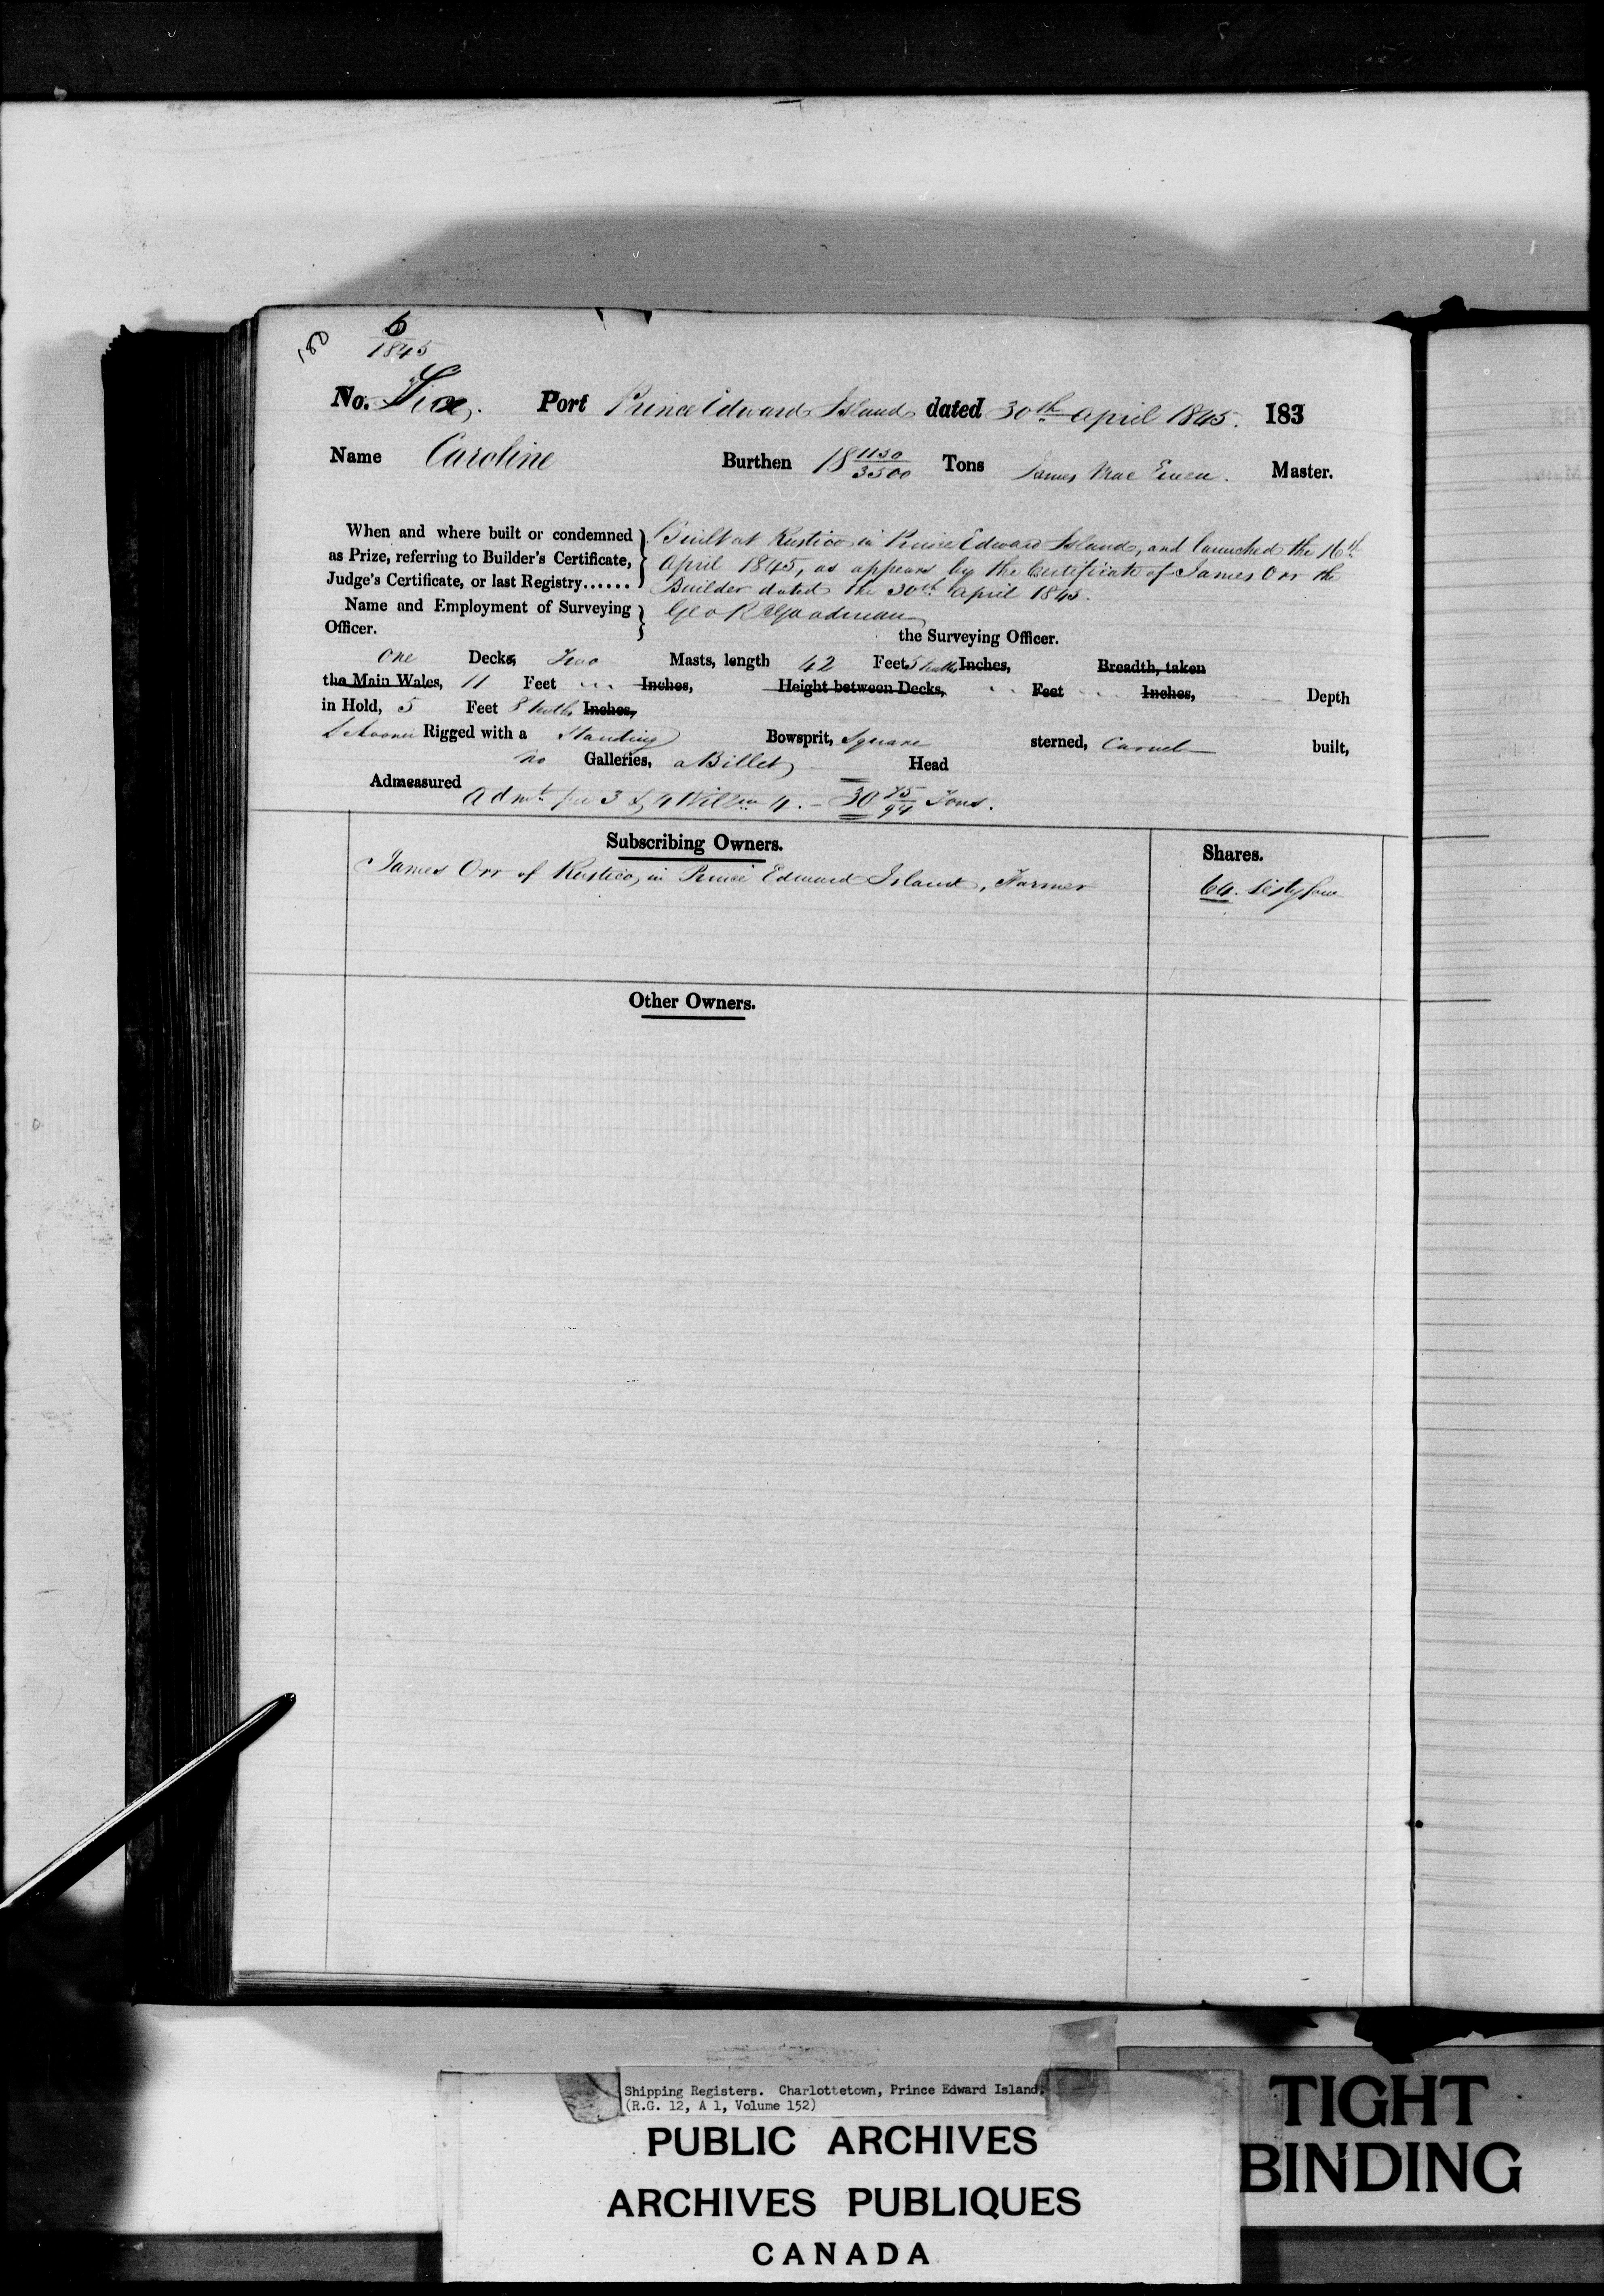 180
6
1845
No. Six. Port Prince Edward Island dated 30th April 1845. 183
Name Caroline Burthen 18 1150/3500 Tons James Mac Ewen. Master.
When and where built or condemned } Built at Rustico in Prince Edward Island, and launched the 16th
as Prize, referring to Builder's Certificate, } April 1845, as appears by the Certificate of James Orr the
Judge's Certificate, or last Registry...... } Builder dated the 30th April 1845.
Name and Employment of Surveying } Geo R Goodman
Officer. the Surveying Officer.
One Decks, Two Masts, length 42 Feet 5 tenths Inches, Breadth, taken
the Main Wales, 11 Feet ... Inches, Height between Decks, .. Feet ... Inches, Depth
in Hold, 5 Feet 8 tenths Inches,
Schooner Rigged with a Standing Bowsprit, Square sterned, Carvel built,
No Galleries, a Billet Head
Admeasured Admt. per 3 & 4 Will 4. - 30 75/94 Tons.
Subscribing Owners. Shares.
James Orr of Rustico, in Prince Edward Island, Farmer 64. Sixty four
Other Owners.
Shipping Registers. Charlottetown, Prince Edward Island.
(R.G. 12, A 1, Volume 152)
PUBLIC ARCHIVES
ARCHIVES PUBLIQUES
CANADA
TIGHT
BINDING